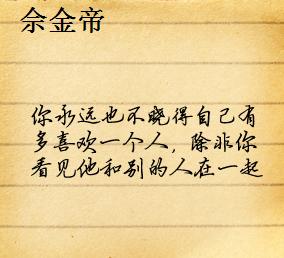 佘金帝
你永远也不晓得自己有
多喜欢一个人，除非你
看见他和别的人在一起